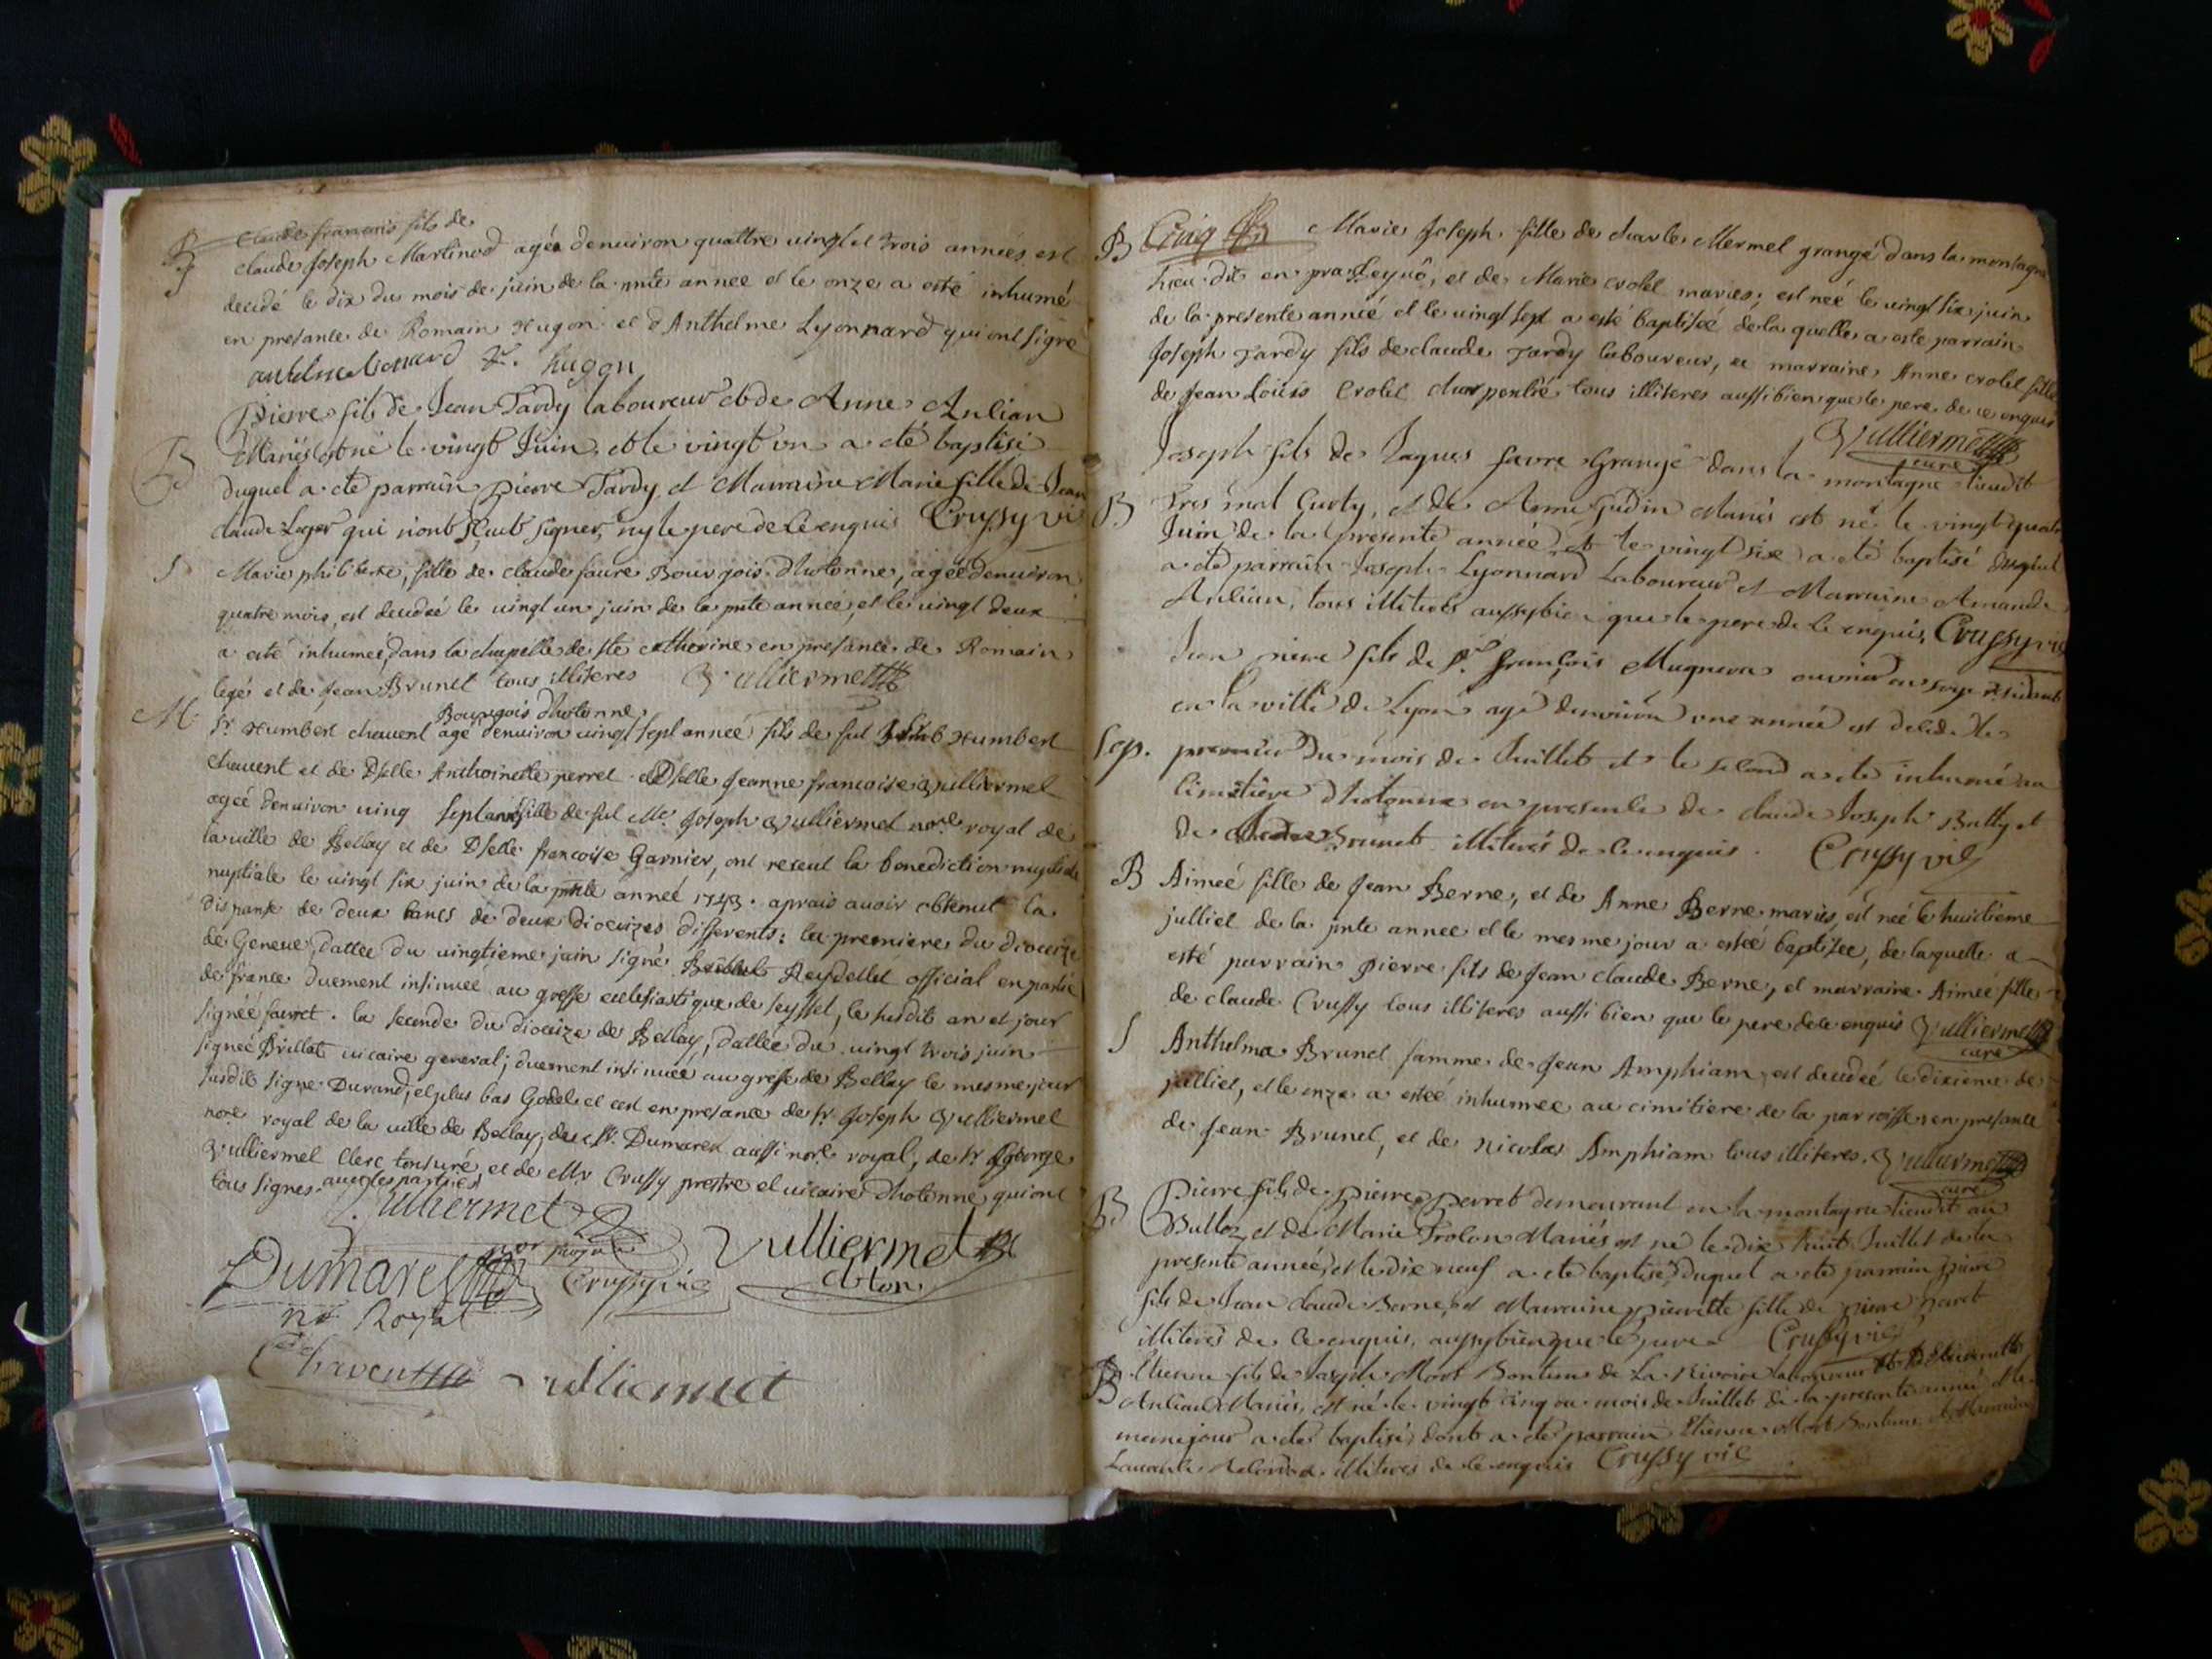 Claude francois fils de
S claude Joseph Martinod agée denuiron quattre uingt et trois années est
decedé le dix du mois de juin de la pnte annee et le onze a esté inhumé
en presance de Romain Hugon et d'Anthelme Lyonnard qui ont signé
antelme lionard R. hugon
Pierre fils de Jean Tardy laboureur et de Anne Anlian
B Mariés est né le vingt Juin, et le vingt un a eté baptisé
duquel a eté parrain pierre Tardy et Marraine Marie fille de Jean
claude Loger qui n'ont sçeut signer, ny le pere de ce enquis Crussy vic
S Marie philiberte, fille de claude faure Bourgois d'hotonne, agée denuiron
quatre mois, est decedeé le uingt un juin de la pnte année, et le uingt deux
a esté inhumeé dans la chapelle de ste catherine en presance de Romain
legé et de Jean Brunet tous illiteres Vulliermet
Bourgois d'hotonne
M Sr Humbert chauent agé denuiron uingt sept année fils de fut Humbert
chauent et de Dselle Anthoinette perret et Dselle Jeanne francoise Vulliermet
ageé denuiron uing sept ans fille de fut Mr Joseph Vulliermet nore royal de
la uille de Bellay et de Dselle francoise Garnier, ont receut la benediction nuptiale
nuptiale le uingt six juin de la pnte anneé 1743. aprais auoir obtenut la
dispanse de deux bancs de deux diocizes differents: la premiere du diocize
de Geneue, dattée du uingtieme juin signé Reydellet official en partie
de france duement insinuée au greffe eclesiastique de seyssel, le susdit an et jour
signéé fauret. la seconde du diocize de Bellay, dattée du uingt trois juin
signeé Brillat uicaire general, duement insinuée au greffe de Bellay le mesme jour
susdit signe Durand, et plus bas Godet et cest en presance de Sr Joseph Vulliermet
nore royal de la uille de Bellay, de Sr. Dumarest aussi nore royal, de Sr George
Vulliermet clerc tonsuré, et de Mr Crussy prestre et uicaire d'hotonne qui ont
tous signes. auec les parties
Vulliermet
nor royal
Dumarest Crussy vic Vulliermet
no Royal cl. ton
Chavent Vulliermet
B Cinq Marie Joseph fille de charle Mermet grangé dans la montagne
lieu dit en pra, et de Marie crolet maries, est neé le uingt six juin
de la presente année et le uingt sept a esté baptiseé de la quelle a este parrain
Joseph Tardy fils de claude Tardy laboureur, et marraine Anne crolet fille
de Jean Loüis Crolet charpentié tous illiteres aussi bien que le pere de ce enquis
Vulliermet
curé
Joseph fils de Jaques favre Grangé dans la montagne lieudit
B Pres mal Gurty, et de Anne Mariés est né le vingt quatre
Juin de la presente année, et le vingt six a eté baptisé duquel
a eté parrain Joseph Lyonnard Laboureur et Marraine
Anlian, tous illiterés aussy bien que le pere de ce enquis, Crussy vic
Jean pierre fils de Sr François ouvrier en soye residant
en la ville de Lyon agé denviron une année est decedé le
Sep. premier du mois de Juillet et le second a eté inhumé au
Cimetiere d'hotonne en presence de claude Joseph Butty et
de Brunet illiterés de ce enquis. Crussy vic
B Aimeé fille de Jean Berne, et de Anne Berne mariés, est neé le huictieme
julliet de la pnte annee et le mesme jour a esteé baptisee, de laquelle a
esté parrain Pierre fils de Jean claude Berne, et marraine Aimeé fille
de claude Crussy tous illiteres aussi bien que le pere de ce enquis Vulliermet
curé
S Anthelma Brunet famme de Jean Amphiam, est decedeé le dixieme de
julliet, et le onze a esteé inhumee au cimitiere de la parroisse en presance
de Jean Brunet, et de Nicolas Amphiam tous illiteres. Vulliermet
curé
B Pierre fils de Pierre Perret demeurant en la montagne lieudit au
Bulloz, et de Marie Frolon Mariés est né le dix huit Juillet de la
presente année, et le dix neuf a eté baptisé, duquel a eté parrain pierre
fils de Jean claude Berne, et Marraine pierrette fille de pierre paret
illiterés de ce enquis, aussy bien que le pere Crussy vic
B Etienne fils de Joseph Mort Bontems de La Rivoire laboureur
Anlian Mariés, est né le vingt cinq au mois de Juillet de la presente année et le
meme jour a eté baptisé, dont a eté parrain Etienne Mort Bontems et Marraine
illiteres de ce enquis Crussy vic